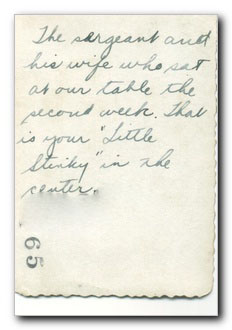 The sargeant and
his wife who sat
at our table the
second week. That
is your "Little
Stinky" in the
center.
65